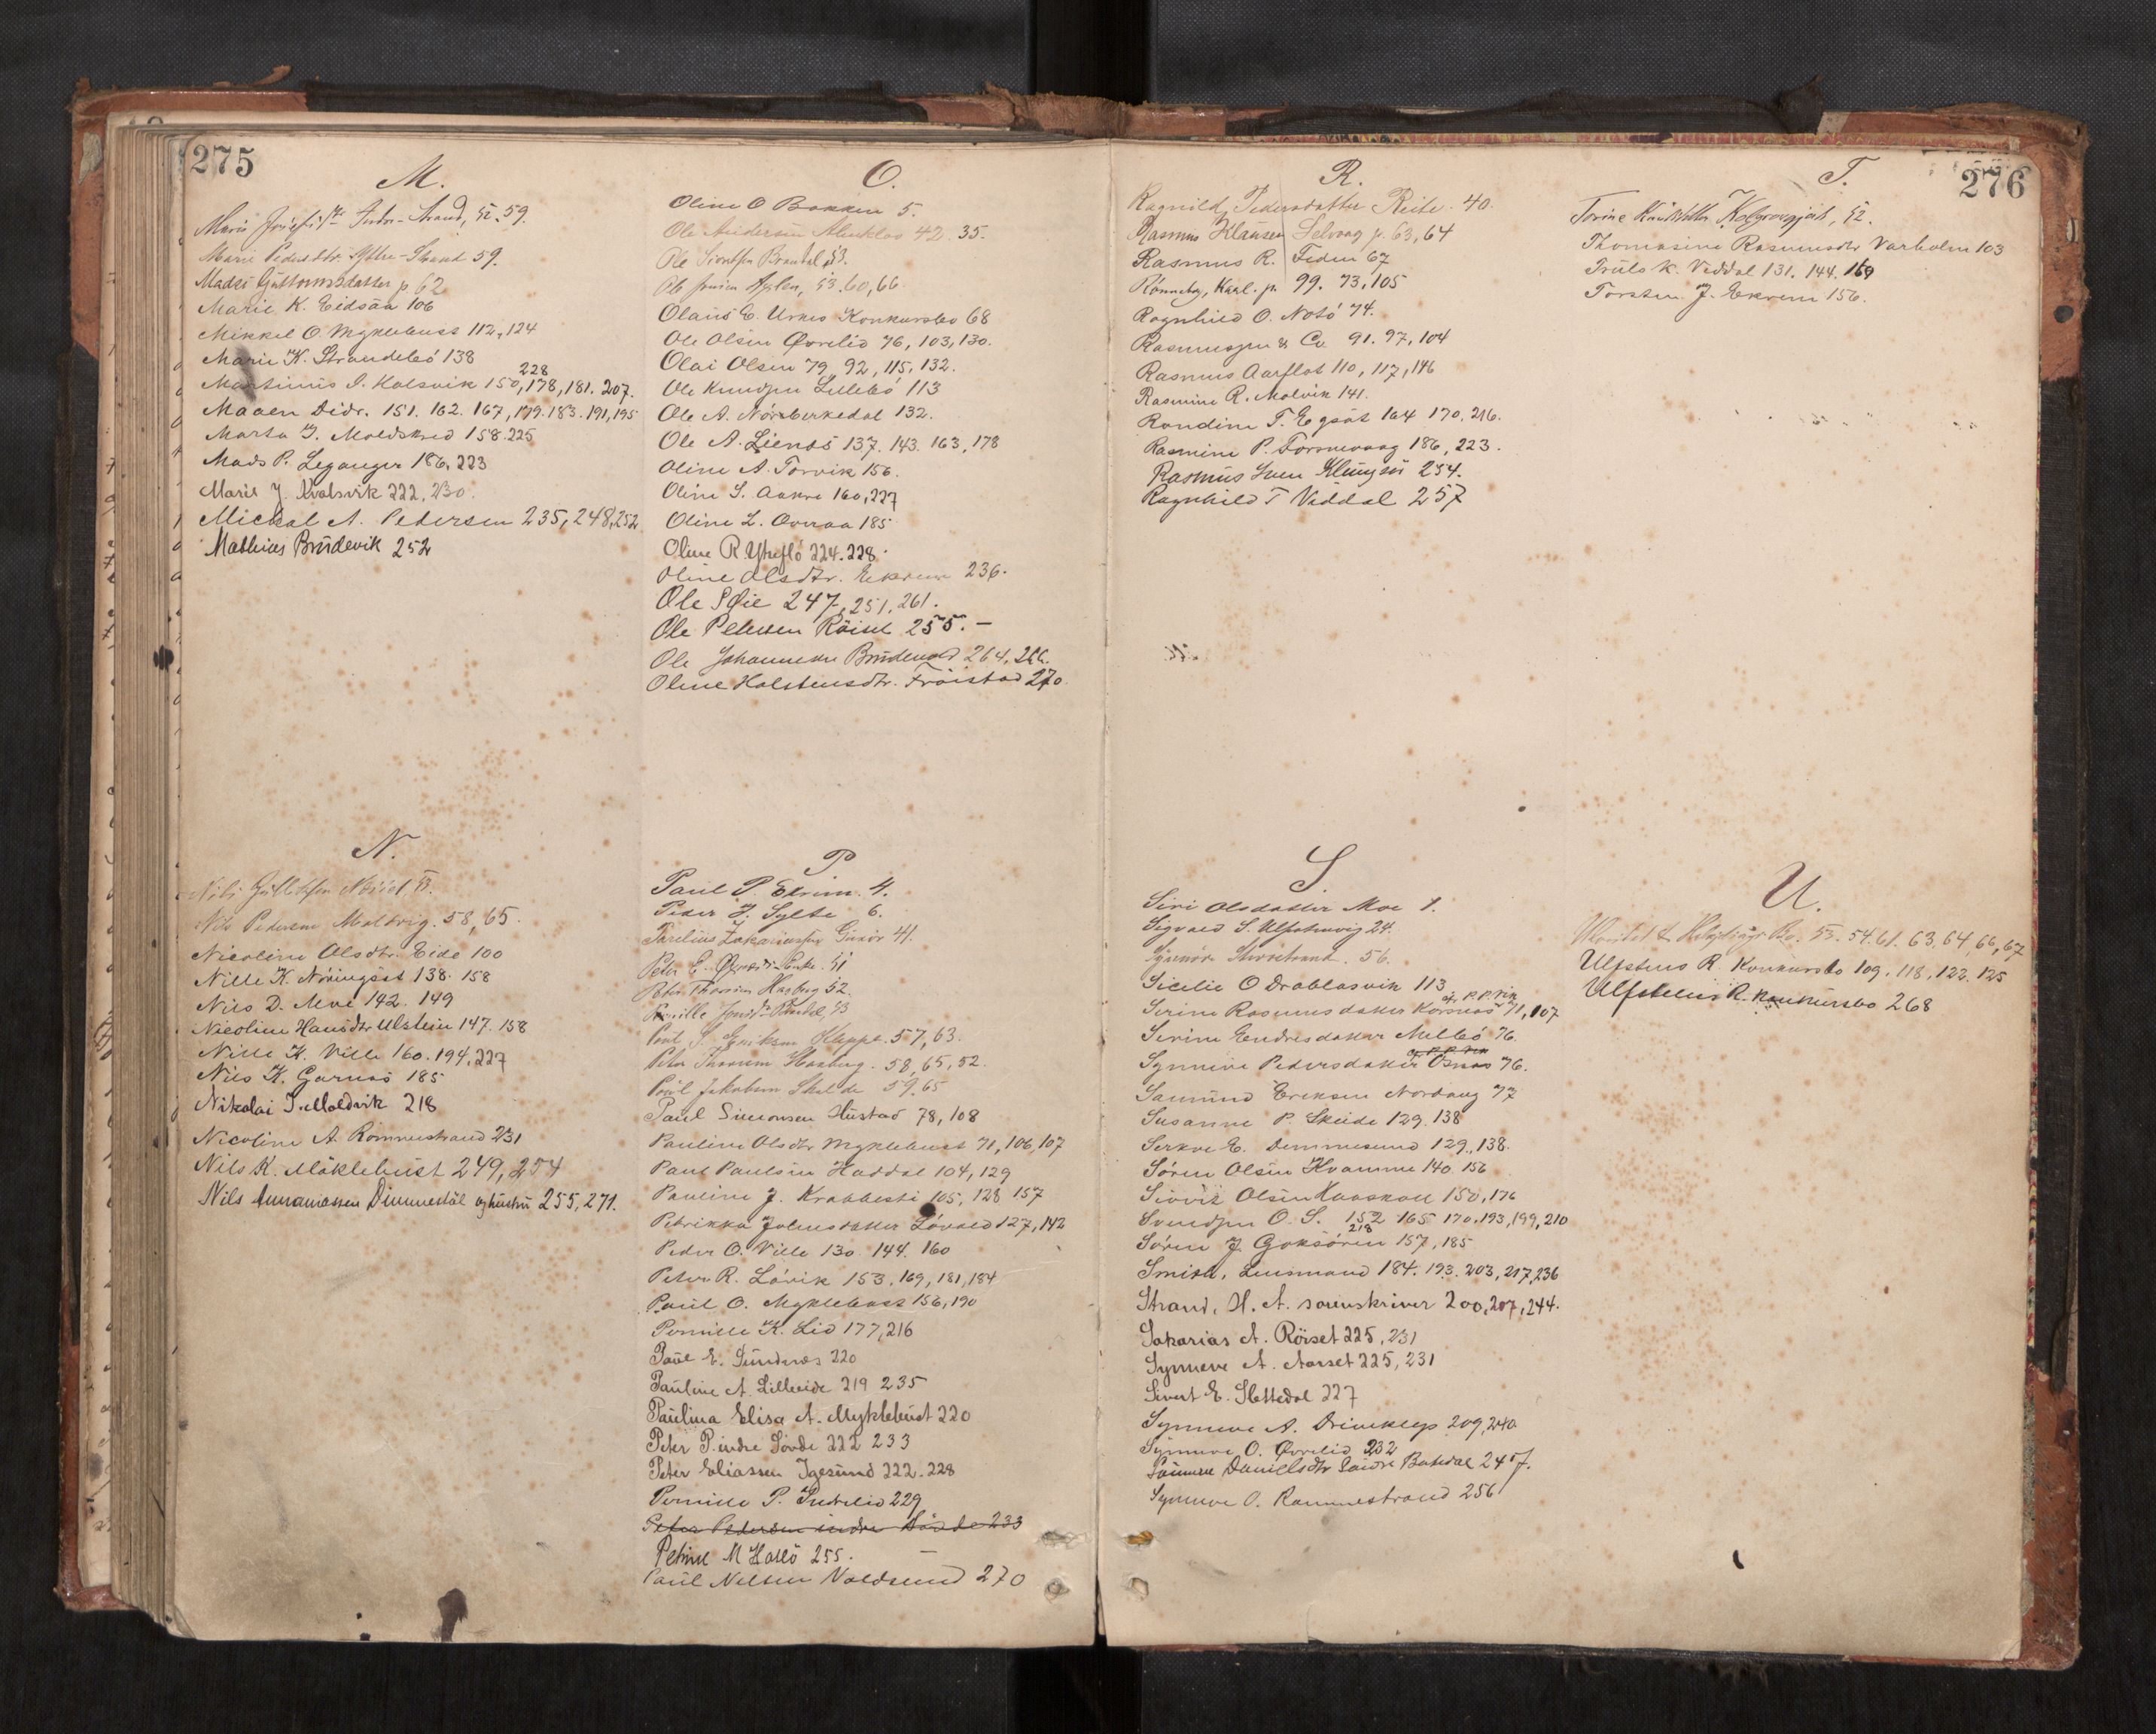 275
M.
Marie Josefsdtr Indre-Strand, 52. 59.
Marie Pedersdtr. Ytre-Strand 59.
Mads Guttormsdatter p 62
Marie K. Eidsaa 106
Mikkel O. Myklebust 112, 124
Marie K. Strandebö 138
228
Martinus I. Kalsvik 150, 178, 181. 207.
Maaen Didr. 151. 162. 167, 179. 183. 191, 195
Marta J. Moldskred 158. 225
Mads P. Leganger 186, 223
Marie J. Kvalsvik 222, 230.
Mickal A. Pedersen 235, 248, 252
Mathias Brudevik 252
N.
Nils 53.
Nils Pedersen Moltvig. 58, 65.
Nicoline Olsdtr. Eide 100
Nille K. Nöringset 138. 158
Nils D. Moe 142. 149
Nicoline Hansdtr Ulstein 147. 158
Nille K. Ville 160. 194, 227
Nils K. Garnæs 185
Nikolai J. Moldvik 218
Nicoline A. Römmestrand 231
Nils K. Möklebust 249, 254
Nils Annanias­sen Dimmestöl og hustru 255, 271.
O.
Oline O Bakken 5.
Ole Andersen 42. 35.
Ole Sivertsen Brandal, 53.
Ole Aplen, 53. 60, 66
Olaus E. Urkes Konkursbo 68
Ole Olsen Øvrelid 76, 103, 130.
Olai Olsen 79, 92, 115, 132.
Ole Knudsen Lillebö 113
Ole A. Nörebirkedal 132.
Ole A. Lienæs 137. 143. 163, 178
Oline A. Torvik 156.
Oline S. Aakre 160, 227
Oline L. Overaa 185
Oline R. Ytreflö 224. 228.
Oline Olsdtr. Ekrem 236.
Ole S Øie 247, 251, 261.
Ole Petersen Röiset 255. –
Ole Johannessen Brudevold 264, 266.
Oline Halstensdtr. Fröistad 270
P.
Paul P. Ekrem. 4.
Peder J. Sylte 6.
Parelius Zakariassen Gurskö 41.
Peter E. 51
Peter Thorsen Hasberg 52.
Pernille 53
Povl S. Eriksen Kleppe. 57, 63.
Peter Thorsen Hasberg. 58, 65, 52.
Povl Jakobsen Skeide 59. 65
Paul Simonsen Hustad 78, 108
Pauline Olsdtr Myklebust 71, 106, 107
Paul Paulsen Haddal 104, 129
Pauline J. Krabbesti 105, 128 157
Petrikka Johnsdatter Lövold 127, 142
Peder O. Ville 130. 144. 160
Peter R. Lövik 153, 169, 181, 184
Paul O. Myklebust 156, 190
Pernille K. Lid 177, 216
Paul E. Sundnes 220
Pauline A. Lilleeide 219 235
Paulina Elisa A. Myklebust 220
Peter P. indre Sövde 222 233
Peter Eliassen Igesund 222. 228
Pernille P. Indrelid 229
Peter Pedersen indre Sövde 233
Petrine M Halsö 255.
Paul Nilsen Voldsund 270
276
R.
Ragnild Pedersdatter Reite. 40.
Rasmus Klausen Selvaag p. 63, 64
Rasmus R. Feden 67
Rönneberg, Karl. p. 99. 73, 105
Ragnhild O. Notö 74.
Rasmussen & Co 91. 97, 104
Rasmus Aarflot 110, 117, 146
Rasmine R. Molvik 141.
Rondine T. Egsæt 164 170. 216.
Rasmine P. Torsnevaag 186, 223.
Rasmus Iven Klungsöi 254.
Ragnhild T Viddal 257
S.
Siri Olsdatter Moe 1.
Sigvald S. Ulfstenvig 24.
Synnöve Störestrand. 56.
Sicelie O Drablasvik 113
og P. P. Vik
Serine Rasmusdatter Korsnæs 71, 107
Serine Endresdatter Melbö 76.
og P. P. Vik
Synneve Pedersdatter Osnæs 76.
Samund Eriksen Nordang 77
Susanne P. Skeide 129, 138
Serkve E. Demmesund 129, 138.
Sören Olsen Kvamme 140. 156
Sivert Olsen Haaskoll 150, 176
Svendsen O. S. 152 165 170. 193, 199, 210
218
Sören J. Goksören 157, 185
Smith, Lensmand 184. 193. 203, 217, 236
Strand, H. A. sorenskriver 200, 207, 244.
Sakarias A. Röiset 225, 231
Synneve A. Aarset 225, 231
Sivert E. Slettedal 227
Synneve A. Driveklep 209, 240
Synneve O. Øvrelid 232
Synneve Danielsdtr Batedal 247.
Synneve O. Rammestrand 256
T.
Torine Knutsdatter Kolgrovgjæt, 52.
Thomasine Rasmusdtr Varholm 103
Truls K. Viddal 131. 144. 169
Torsten J. Ekrem 156.
U.
Bo. 53. 54. 61. 63, 64, 66, 67
Ulfstens R. Konkursbo 109. 118, 122. 125
Ulfsteins R. Konkursbo 268